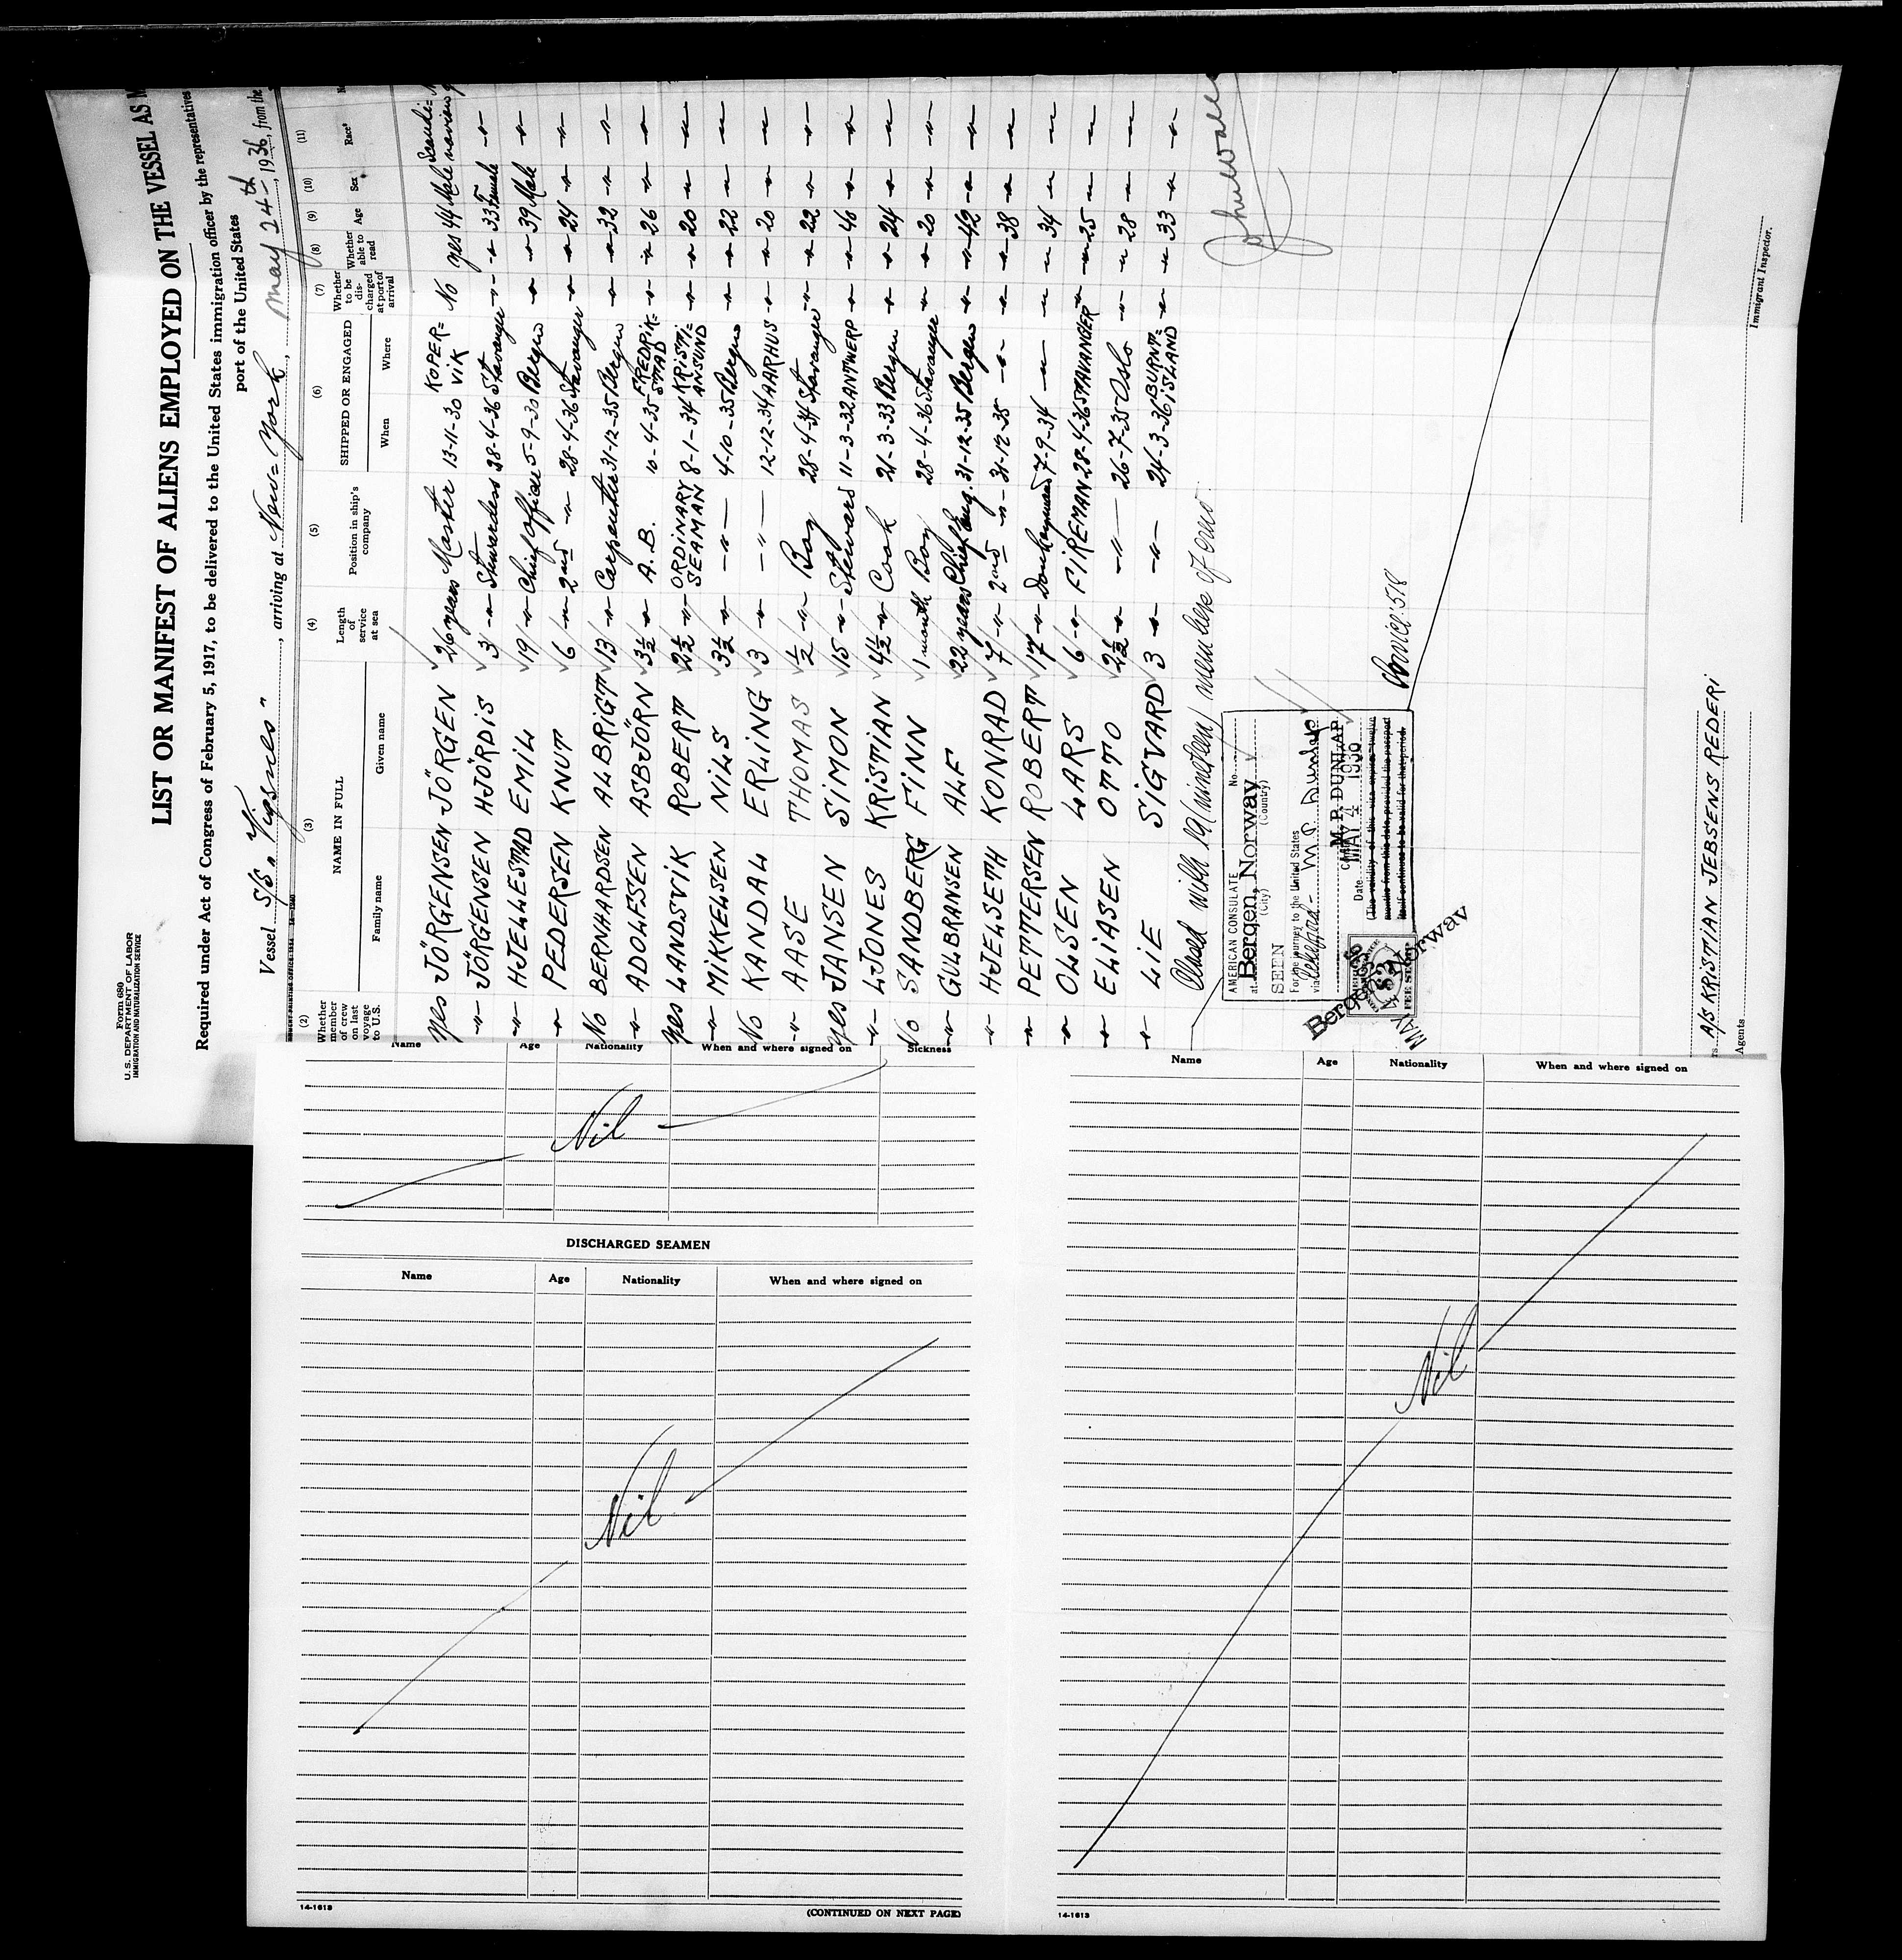 Form 680
U. S. DEPARTMENT OF LABOR
IMMIGRATION AND NATURALIZATION SERVICE
LIST OR MANIFEST OF ALIENS EMPLOYED ON THE VESSEL AS M
Required under Act of Congress of February 5, 1917, to be delivered to the United States immigration officer by the representatives
port of the United States
Vessel S/S "Vigsnes", arriving at New-York, May 24th, 1936, from the
(2) (3) (4) (5) (6) (7) (8) (9) (10) (11)
Whether member of crew on last voyage to U.S. NAME IN FULL Family name Given name Length of service at sea Position in ship's company SHIPPED OR ENGAGED When Where Whether to be discharged at port of arrival Whether able to read Age Sex Race*
yes JÖRGENSEN JÖRGEN 26 years Master 13-11-30 KOPERVIK No yes 44 Male Scandinavian
-"- JÖRGENSEN HJÖRDIS 3 -"- Stewardess 28-4-36 Stavanger -"- -"- 33 Female -"-
-"- HJELLESTAD EMIL 19 -"- Chief Officer 5-9-30 Bergen -"- -"- 39 Male -"-
-"- PEDERSEN KNUT 6 -"- 2nd -"- 28-4-36 Stavanger -"- -"- 24 -"- -"-
No BERNHARDSEN ALBRIGT 13 -"- Carpenter 31-12-35 Bergen -"- -"- 32 -"- -"-
-"- ADOLFSEN ASBJÖRN 3½ -"- A.B. 10-4-35 FREDRIKSTAD -"- -"- 26 -"- -"-
yes LANDSVIK ROBERT 2½ -"- ORDINARY SEAMAN 8-1-34 KRISTIANSUND -"- -"- 20 -"- -"-
-"- MIKKELSEN NILS 3½ -"- -"- 4-10-35 Bergen -"- -"- 22 -"- -"-
No KANDAL ERLING 3 -"- -"- 12-12-34 AARHUS -"- -"- 20 -"- -"-
-"- AASE THOMAS ½ -"- Boy 28-4-34 Stavanger -"- -"- 22 -"- -"-
yes JANSEN SIMON 15 -"- Steward 11-3-32 ANTWERP -"- -"- 40 -"- -"-
-"- LJONES KRISTIAN 4½ -"- Cook 21-3-33 Bergen -"- -"- 24 -"- -"-
No SANDBERG FINN 1 month Boy 28-4-36 Stavanger -"- -"- 20 -"- -"-
-"- GULBRANSEN ALF 22 years Chief Eng. 31-12-35 Bergen -"- -"- 42 -"- -"-
-"- HJELSETH KONRAD 7 -"- 2nd -"- 31-12-35 -"- -"- -"- 38 -"- -"-
-"- PETTERSEN ROBERT 17 -"- Donkeyman 7-9-34 -"- -"- -"- 34 -"- -"-
-"- OLSEN LARS 6 -"- FIREMAN 28-4-36 STAVANGER -"- -"- 25 -"- -"-
-"- ELIASEN OTTO 2½ -"- -"- 26-7-35 Oslo -"- -"- 28 -"- -"-
-"- LIE SIGVARD 3 -"- -"- 24-3-36 BURNTISLAND -"- -"- 33 -"- -"-
Closed with 19 (nineteen) members of crew.
AMERICAN CONSULATE No.
at Bergen, Norway
(City) (Country)
SEEN
For the journey to the United States
via
M. P. Dunlap
M. P. DUNLAP
Date MAY 4 1936
(The validity of this visa expires twelve
months from this date, provided the passport
itself continues to be valid for that period.
Service: 518
Bergen, Norway
MAY
FEE STAMP
$2
A/S KRISTIAN JEBSENS REDERI
Agents
Immigrant Inspector.
Name Age Nationality When and where signed on Sickness
Nil
DISCHARGED SEAMEN
Name Age Nationality When and where signed on
Nil
14-1613 (CONTINUED ON NEXT PAGE)
Name Age Nationality When and where signed on
Nil
14-1613